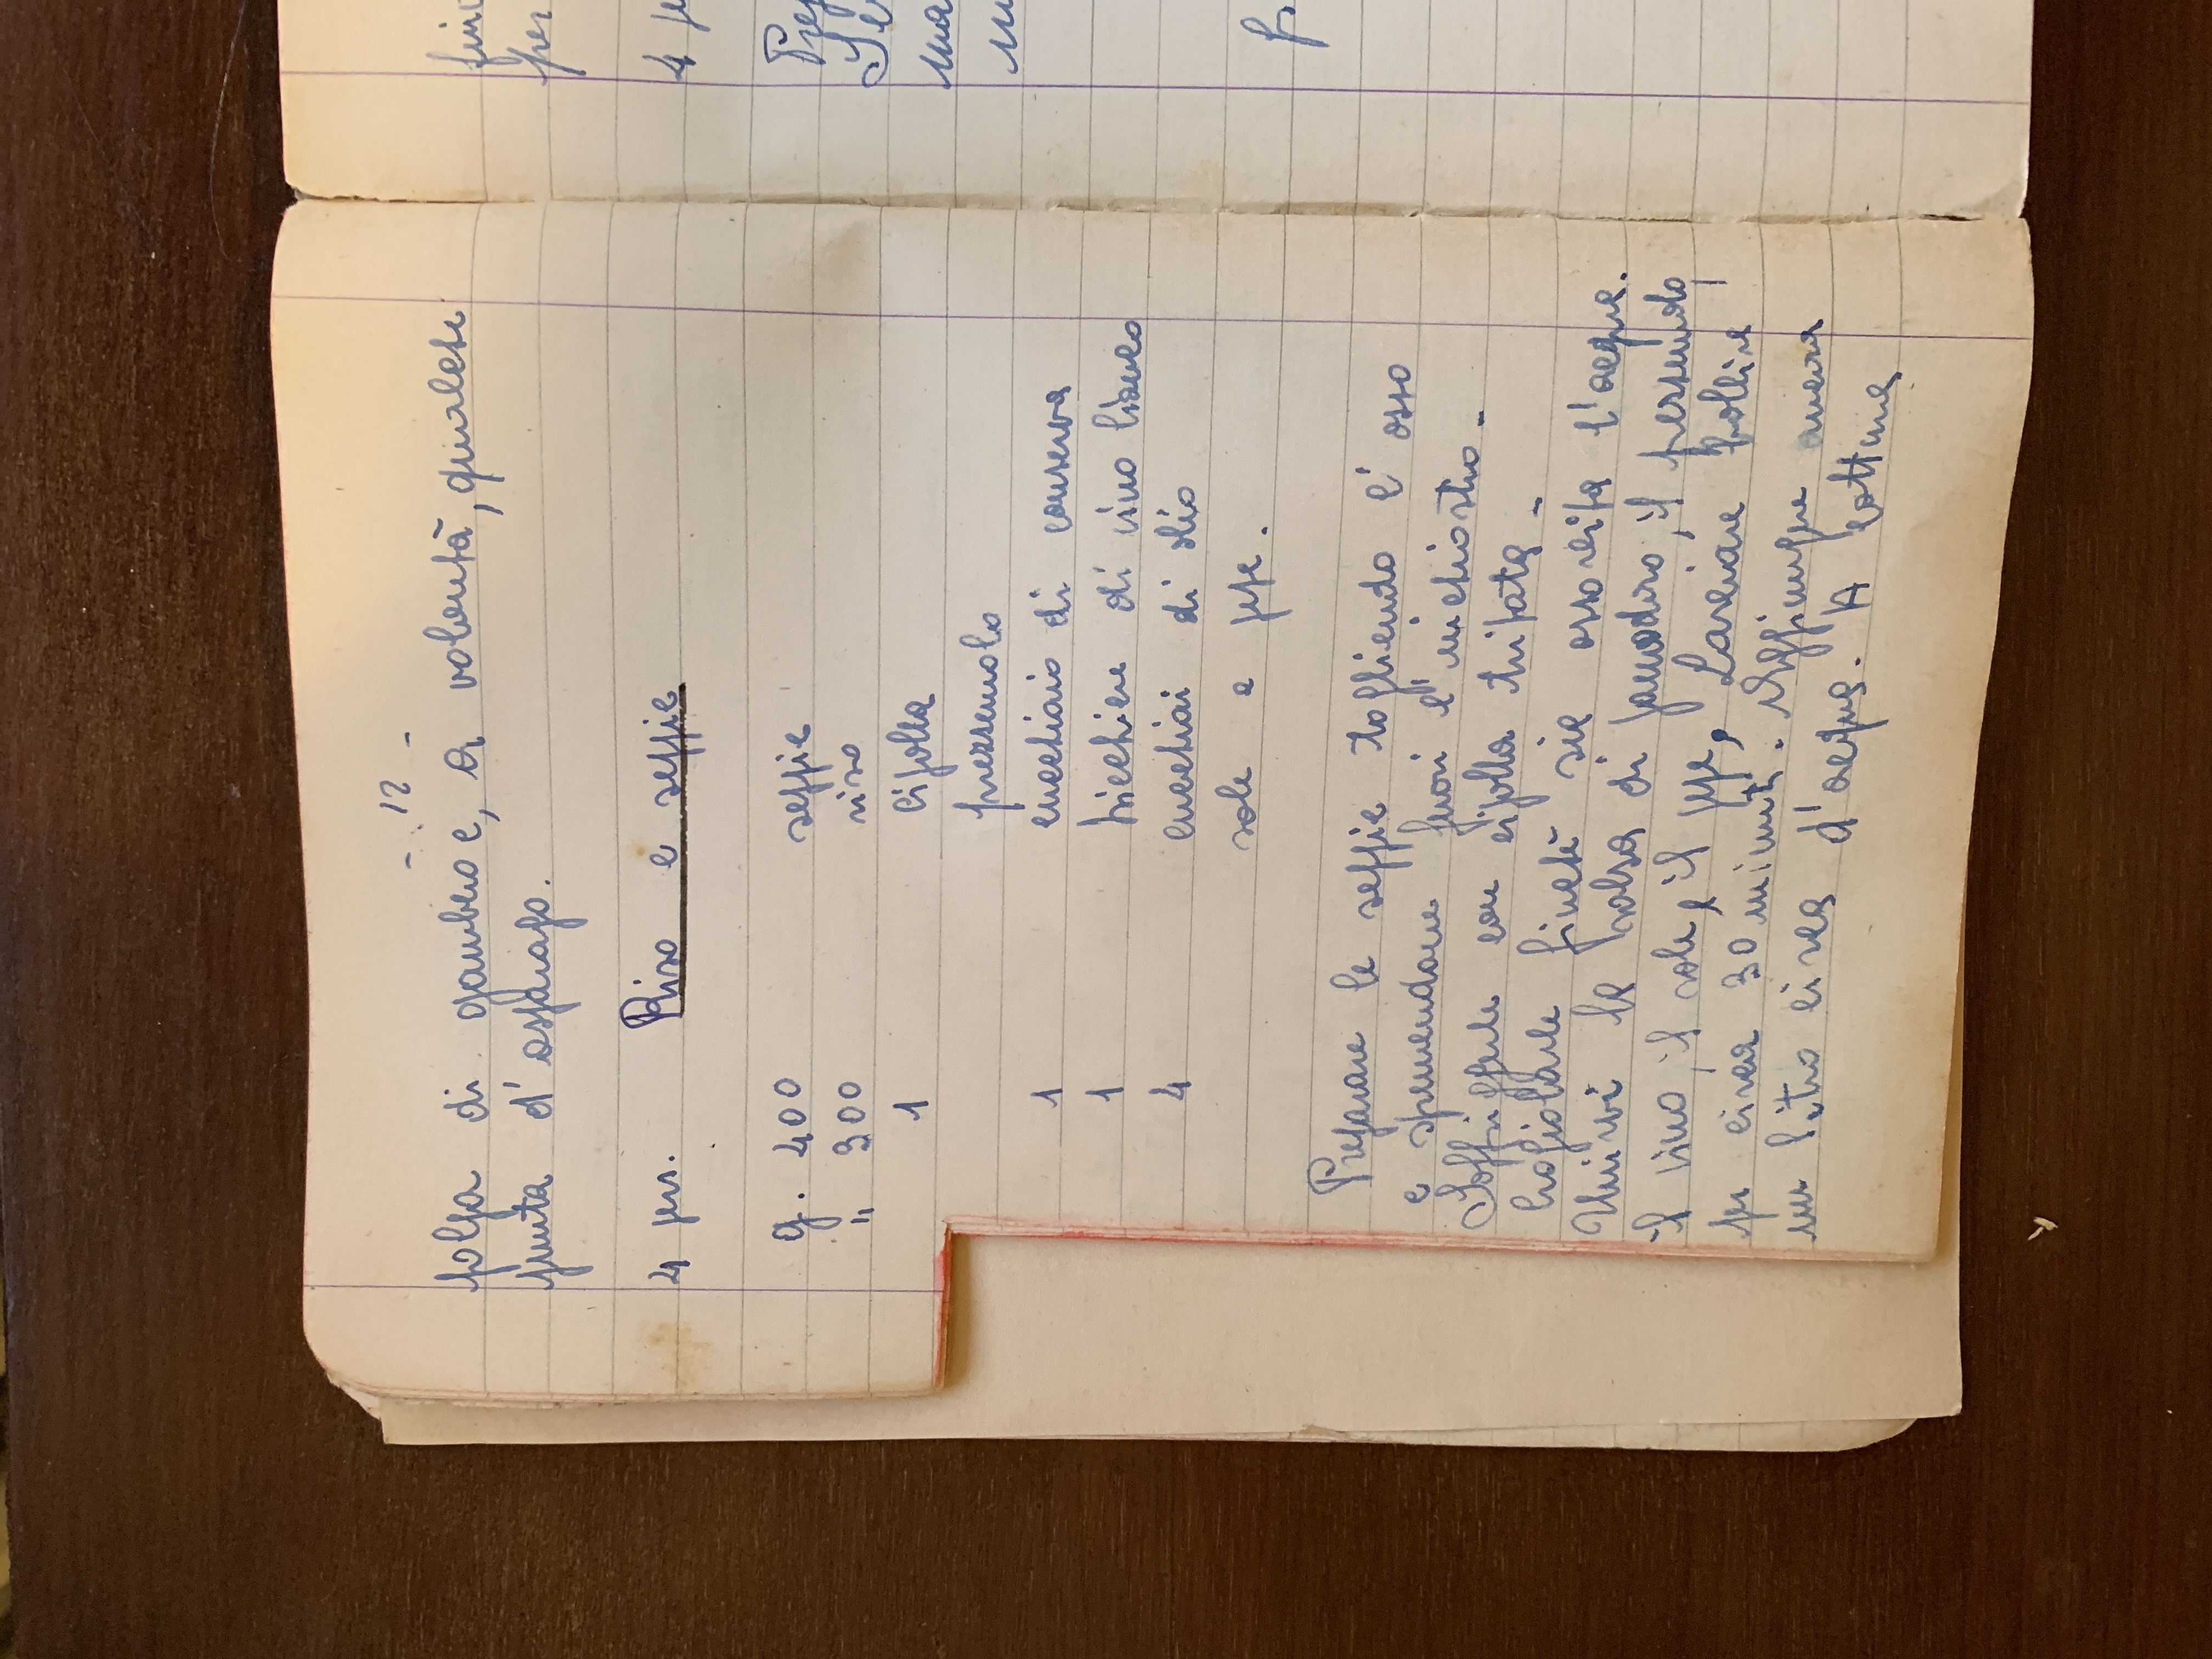 - 12 -
polpa di gambero e, a volontà, qualche
punta d'asparago.
4 pers. Riso e seppie
g. 400 seppie
" 300 riso
1 cipolla
prezzemolo
1 cucchiaio di conserva
1 bicchiere di vino bianco
4 cucchiai di olio
sale e pepe.
Preparare le seppie togliendo l'osso
e spremendone fuori l'inchiostro -
Soffriggerle con cipolla tritata -
Crogiolarle finchè sia assorbita l'acqua.
Unirvi la salsa di pomodoro, il
il vino, il sale e il pepe, Lasciare bollire
per circa 30 minuti. Aggiungere ancora
un litro circa d'acqua. A cottura
per
4
Pre
Se
ma